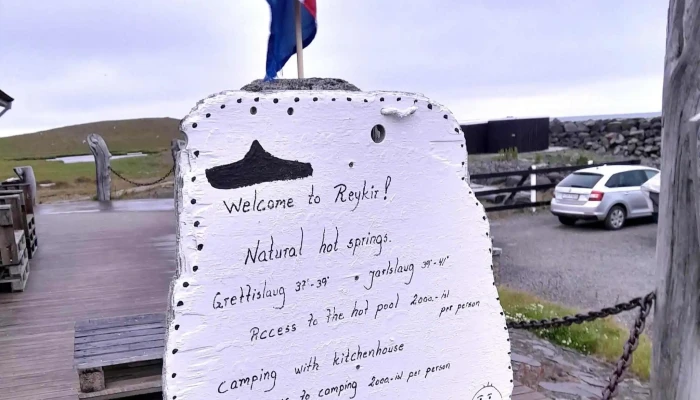 Welcome to Reykir!
Natural hot springs.
Grettislaug 37°-39° • Jarlslaug 39°-41°
Access to the hot pool 2000.-ísl per person
Camping with kitchenhouse
to camping 2000.-ísl per person